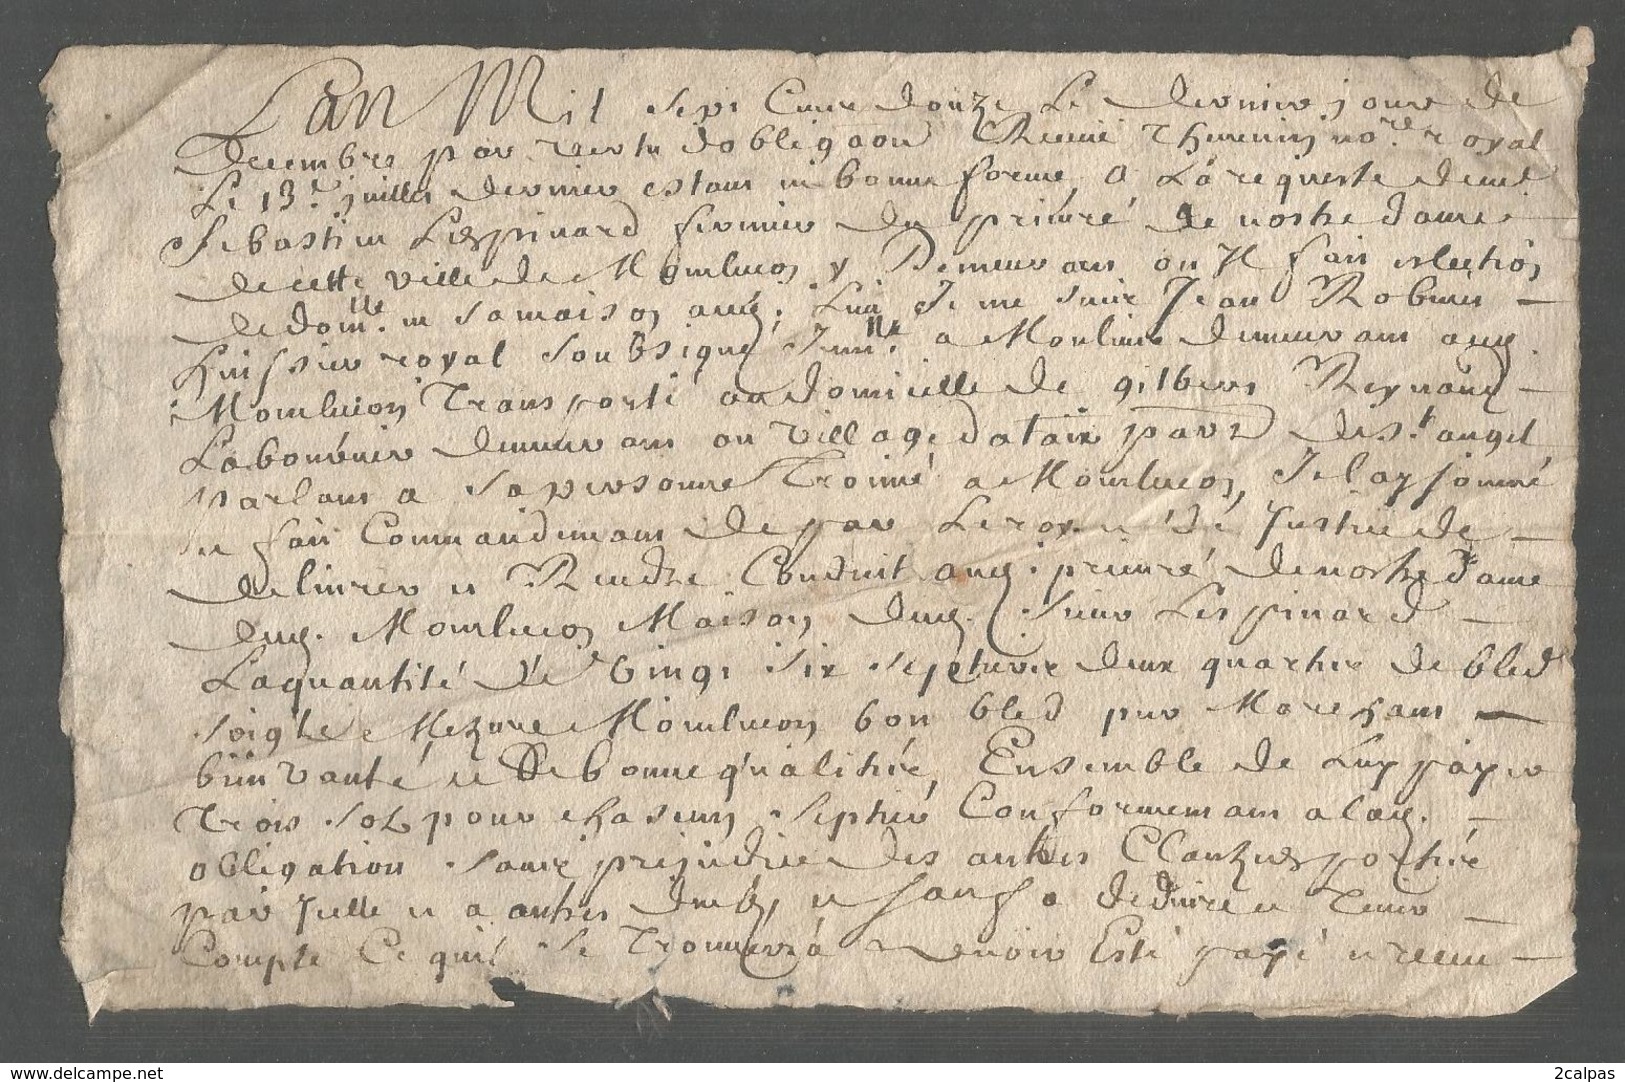 Lan Mil sept Cent douze Le dernier jour de
decembre par vertu dobliga͠on Recuë Thevenin no.re royal
Le 13.e juillet dernier estant in bonne forme, a La requeste de me.
Sebastien Lespinard fermier du prieuré de nostre dame
de cette ville de Montlucon y Demeurant ou Il fait eslection
de domi.lle en sa maison aud. Lieu Je me suis Jean Robert
huissier royal soubsigné Imm.lle a Moulins demeurant aud.
Montlucon Transporté au domicille de gilbert Reynaud
Laboureur demeurant au village datax par. de s.t angel
parlant a sa personne Trouvé a Montlucon, Je lay sommé
et fait Commandement de par Le roy et de Justice de
delivrer et Rendre Conduit aud. prieuré de nostre dame
dud. Montlucon Maison dud. sieur Lespinard
La quantité de vingt six septiers deux quartes de bled
soigle Mezure Montlucon bon bled pur Marchant
bien vanté et de bonne qualitée, Ensemble de Luy payer
Trois solz pour chascun septier Conformement a lad.
obligation sans prejudice des autres Clauzes portées
par Icelle et a autres deubz et sauf a deduire et Tenir
Compte Ce quil se Trouvera avoir Esté payé et receu
www.delcampe.net
2calpas